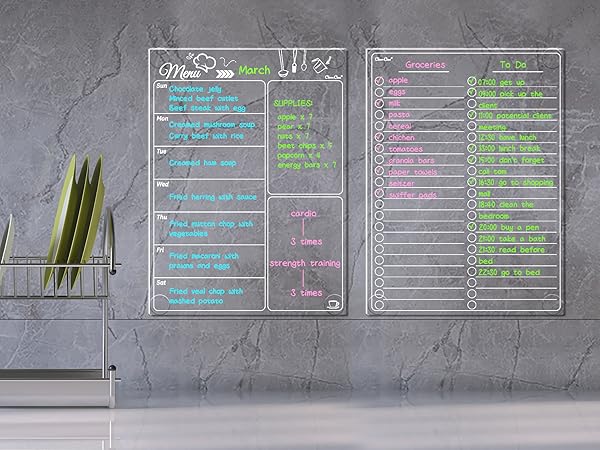 Menu
March
Sun
Chocolate jelly
Minced beef cutlet
Beef steak with egg
Mon
Creamed mushroom soup
Curry beef with rice
Tue
Creamed ham soup
Wed
Fried herring with sauce
Thu
Fried mutton chop with
vegetables
Fri
Fried macaroni with
prawns and eggs
Sat
Fried veal chop with
mashed potato
SUPPLIES:
apple x 7
pear x 7
nuts x 7
beet chips x 5
popcorn x 4
energy bars x 7
cardio
3 times
strength training
3 times
Groceries
apple
eggs
milk
pasta
cereal
chicken
tomatoes
granola bars
paper towels
seltzer
swiffer pads
To Do
07:00 get up
09:00 pick up the
client
11:00 potential client
meeting
12:30 have lunch
13:00 lunch break
15:00 don't forget
call tom
16:30 go to shopping
mall
18:40 clean the
bedroom
20:00 buy a pen
21:00 take a bath
21:30 read before
bed
22:30 go to bed